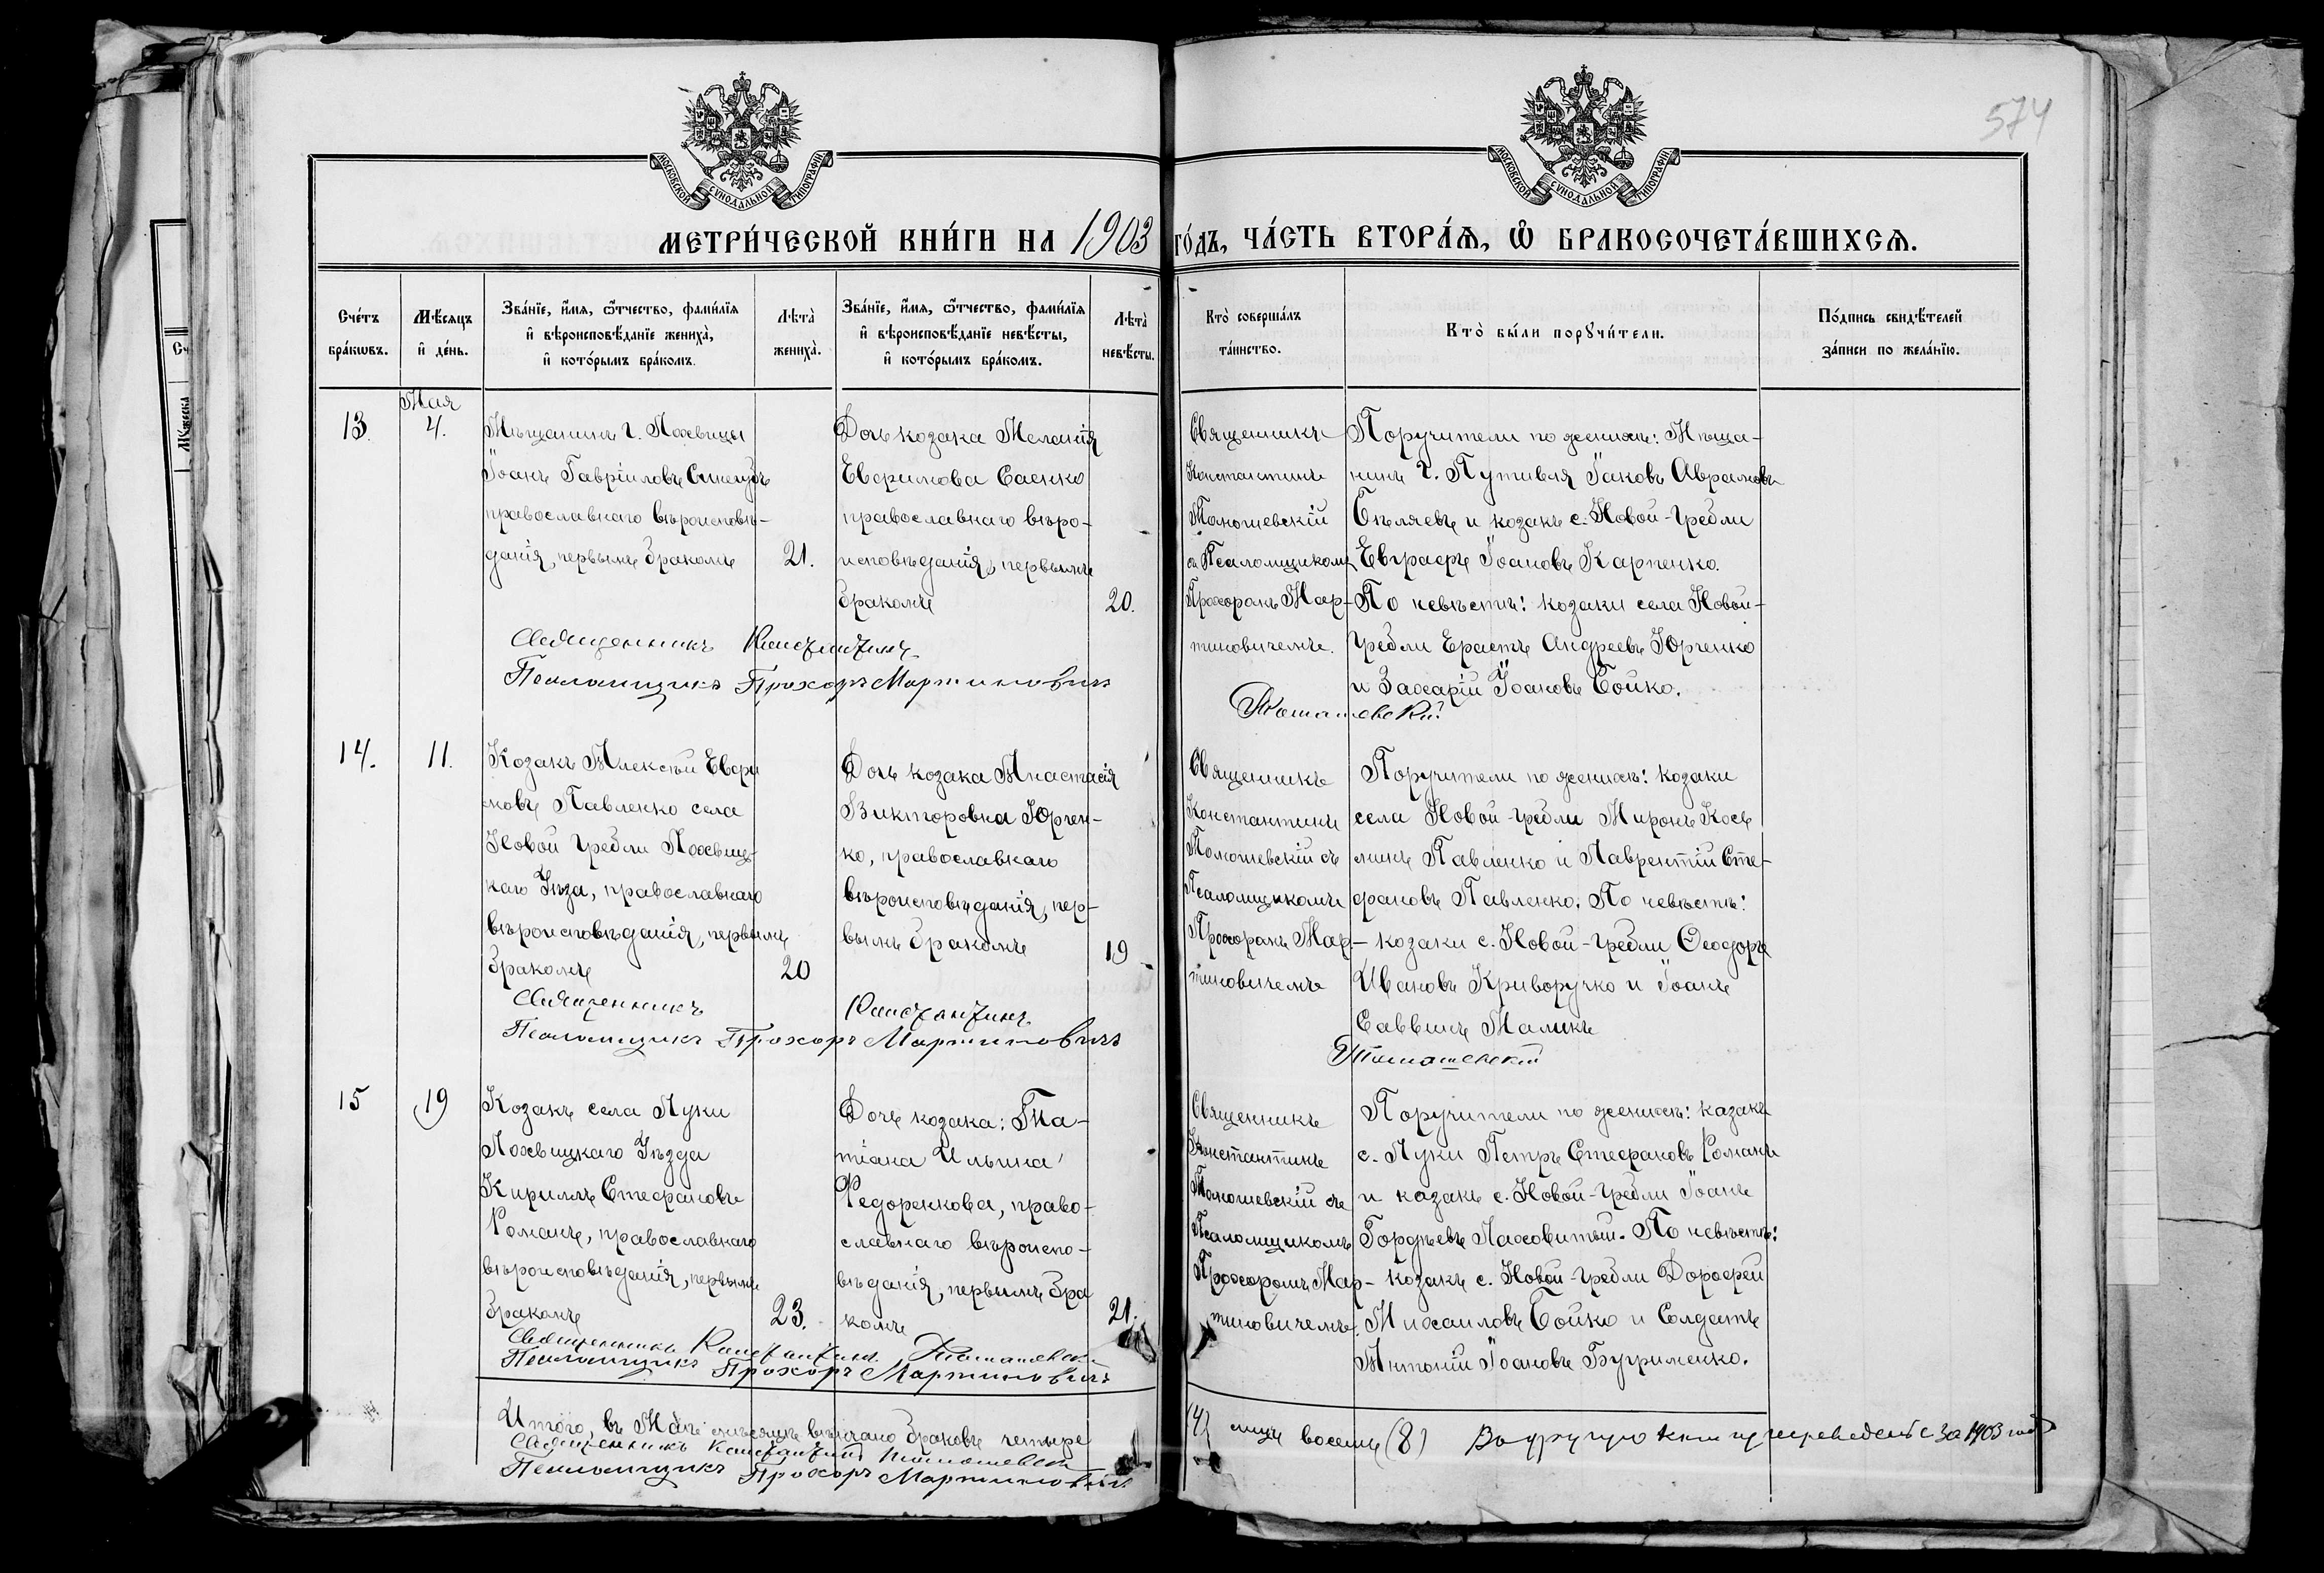 574
МОСКОВСКОЙ СѴНОДАЛЬНОЙ ТИПОГРАФІИ
МОСКОВСКОЙ СѴНОДАЛЬНОЙ ТИПОГРАФІИ
МЕТРИ́ЧЕСКОЙ КНИ́ГИ НА 1903 ГО́ДЪ, ЧА́СТЬ ВТОРА́Ѧ, Ѽ БРАКОСОЧЕТА́ВШИХСѦ.
Сче́тъ
бра́кѡвъ.
Мѣ́сяцъ
и҆ де́нь.
Зва́нїе, и҆́мя, ѻ҆́тчество, фами́лїя
и҆ вѣроисповѣ́данїе жениха̀,
и҆ кото́рымъ бра́комъ.
Лѣта̀
жениха̀.
Зва́нїе, и҆́мя, ѻ҆́тчество, фами́лїя
и҆ вѣроисповѣ́данїе невѣ́сты,
и҆ кото́рымъ бра́комъ.
Лѣта̀
невѣ́сты.
Кто̀ соверша́лъ
та́инство.
Кто̀ бы́ли порꙋчи́тели.
По́дпись свидѣ́телей
за́писи по жела́нїю.
Мая
13.
4.
Мѣщанинъ г. Лохвицы
Іоанъ Гавріиловъ
православнаго вѣроисповѣ-
данія, первымъ бракомъ
21.
Дочь козака Меланія
Евфимова Саенко
православнаго вѣро-
исповѣданія, первымъ
бракомъ
20.
Священникъ
Константинъ
Томашевскій
съ Псаломщикомъ
Прохоромъ Мар-
тиновичемъ.
Поручители по женихѣ: Мѣща-
нинъ г. Путивля Іаковъ Аврамовъ
Бѣляевъ и козакъ с. Новой-Гребли
Евграфъ Іоановъ Карпенко.
По невѣстѣ: козаки села Новой-
Гребли Ерастъ Андреевъ Юрченко
и Захарій Іоановъ Бойко.
Священникъ Константинъ Томашевскій
Псаломщикъ Прохоръ Мартиновичъ
14.
11.
Козакъ Алексѣй Евфи
мовъ Павленко села
Новой Гребли Лохвиц-
каго Уѣзда, православнаго
вѣроисповѣданія, первымъ
бракомъ
20
Дочь козака Анастасія
Викторовна Юрчен-
ко, православнаго
вѣроисповѣданія, пер-
вымъ бракомъ
19
Священникъ
Константинъ
Томашевскій съ
Псаломщикомъ
Прохоромъ Мар-
тиновичемъ
Поручители по женихѣ: козаки
села Новой-Гребли Миронъ Косъ
минъ Павленко и Лаврентій Сте-
фановъ Павленко. По невѣстѣ:
козаки с. Новой-Гребли Ѳеодоръ
Ивановъ Криворучко и Іоанъ
Саввинъ Маликъ
Священникъ Константинъ Томашевскій
Псаломщикъ Прохоръ Мартиновичъ
15
19
Козакъ села Луки
Лохвицкаго Уѣзда
Кириллъ Стефановъ
Романъ, православнаго
вѣроисповѣданія, первымъ
бракомъ
23.
Дочь козака: Та-
тіана Ильина
Федоренкова, право-
славнаго вѣроиспо-
вѣданія, первымъ бра
комъ
21.
Священникъ
Константинъ
Томашевскій съ
Псаломщикомъ
Прохоромъ Мар-
тиновичемъ.
Поручители по женихѣ: казакъ
с. Луки Петръ Стефановъ Романъ
и казакъ с. Новой-Гребли Іоанъ
Гордѣевъ Лаховитый. По невѣстѣ:
козакъ с. Новой-Гребли Дорофей
Михаиловъ Бойко и Солдатъ
Антоній Іоановъ Бугрименко.
Священникъ Константинъ Томашевскій
Псаломщикъ Прохоръ Мартиновичъ
Итого, въ Маѣ мѣсяцѣ вѣнчано браковъ четыре (4) лицъ восемь (8) Въ другую книгу переведены за 1903 годъ
Священникъ Константинъ Томашевскій
Псаломщикъ Прохоръ Мартиновичъ